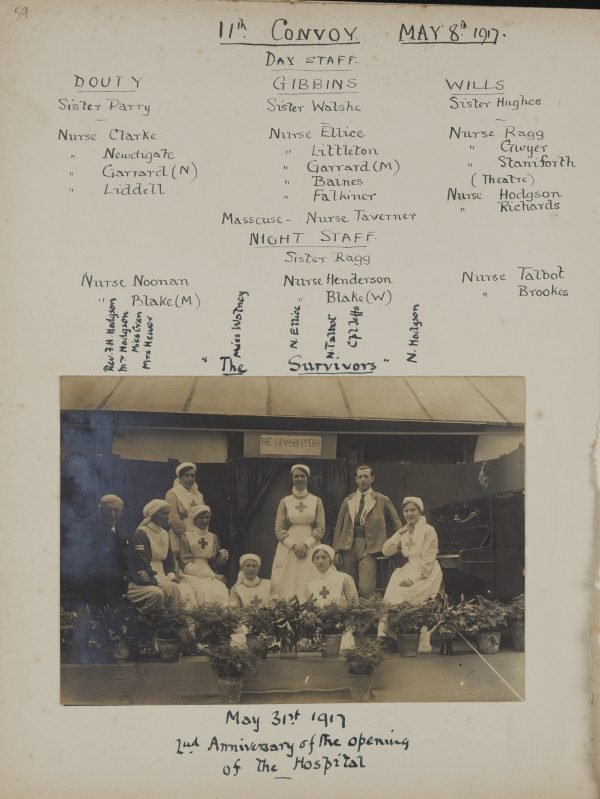 59
11th CONVOY. MAY 8th 1917.
DAY STAFF.
DOUTY GIBBINS WILLS
Sister Parry Sister Walshe Sister Hughes
Nurse Clarke Nurse Ellice Nurse Ragg
" Newdigate " Littleton " Gwyer
" Garrard (N) " Garrard (M) " Staniforth
" Liddell " Baines (Theatre)
" Falkiner Nurse Hodgson
" Richards
Masseuse - Nurse Taverner
NIGHT STAFF.
Sister Ragg
Nurse Noonan Nurse Henderson Nurse Talbot
" Blake (M) " Blake (W) " Brookes
Rev. F.H. Hodgson
Mr Hodgson
Miss Evan
Mrs Hewer
Miss Watney
N. Ellice
N. Talbot
Cpl Jeffs
N. Hodgson
"The Survivors"
THE GRASSHOPPERS
May 31st 1917
2nd Anniversary of the opening
of the Hospital